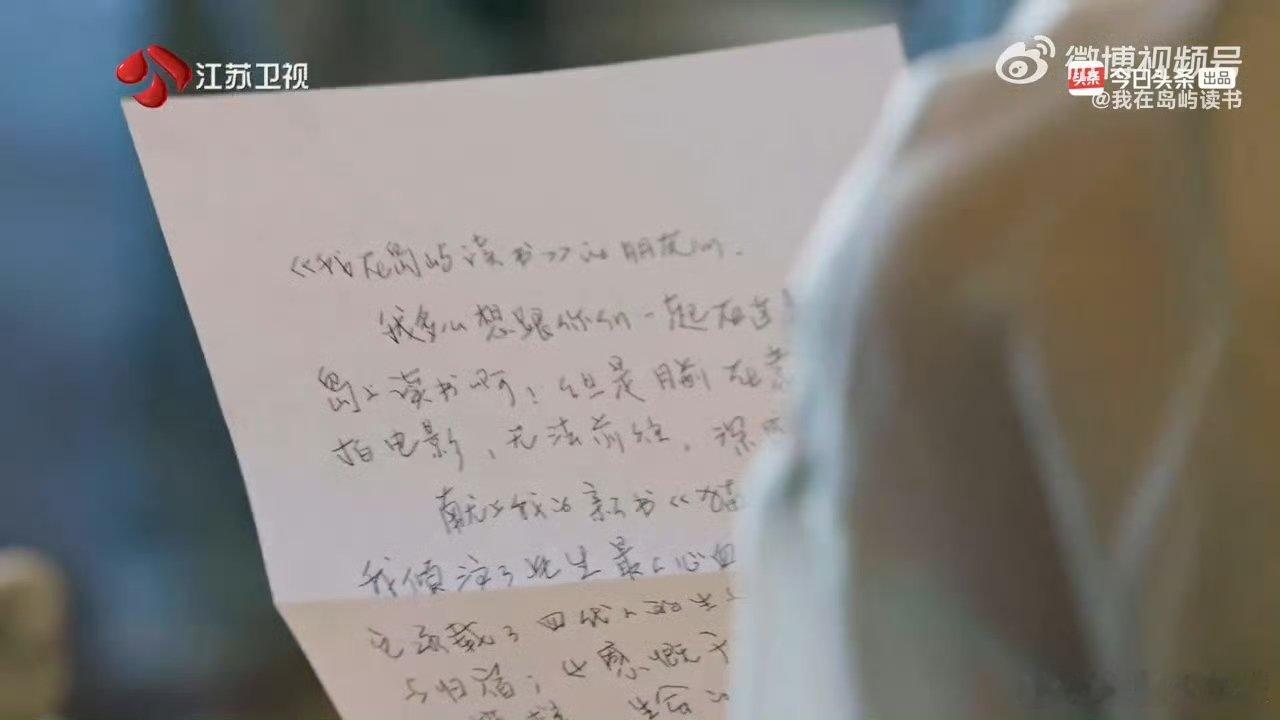 江苏卫视
微博视频号
头条 今日头条 出品
@我在岛屿读书
《我在岛屿读书》的朋友们.
我多么想跟你们一起在这
岛上读书啊！但是目前在
拍电影，无法前往，深
献上我的新书《
我倾注了此生最大心血
它承载了四代人的生
与归宿；也感慨于
生命的